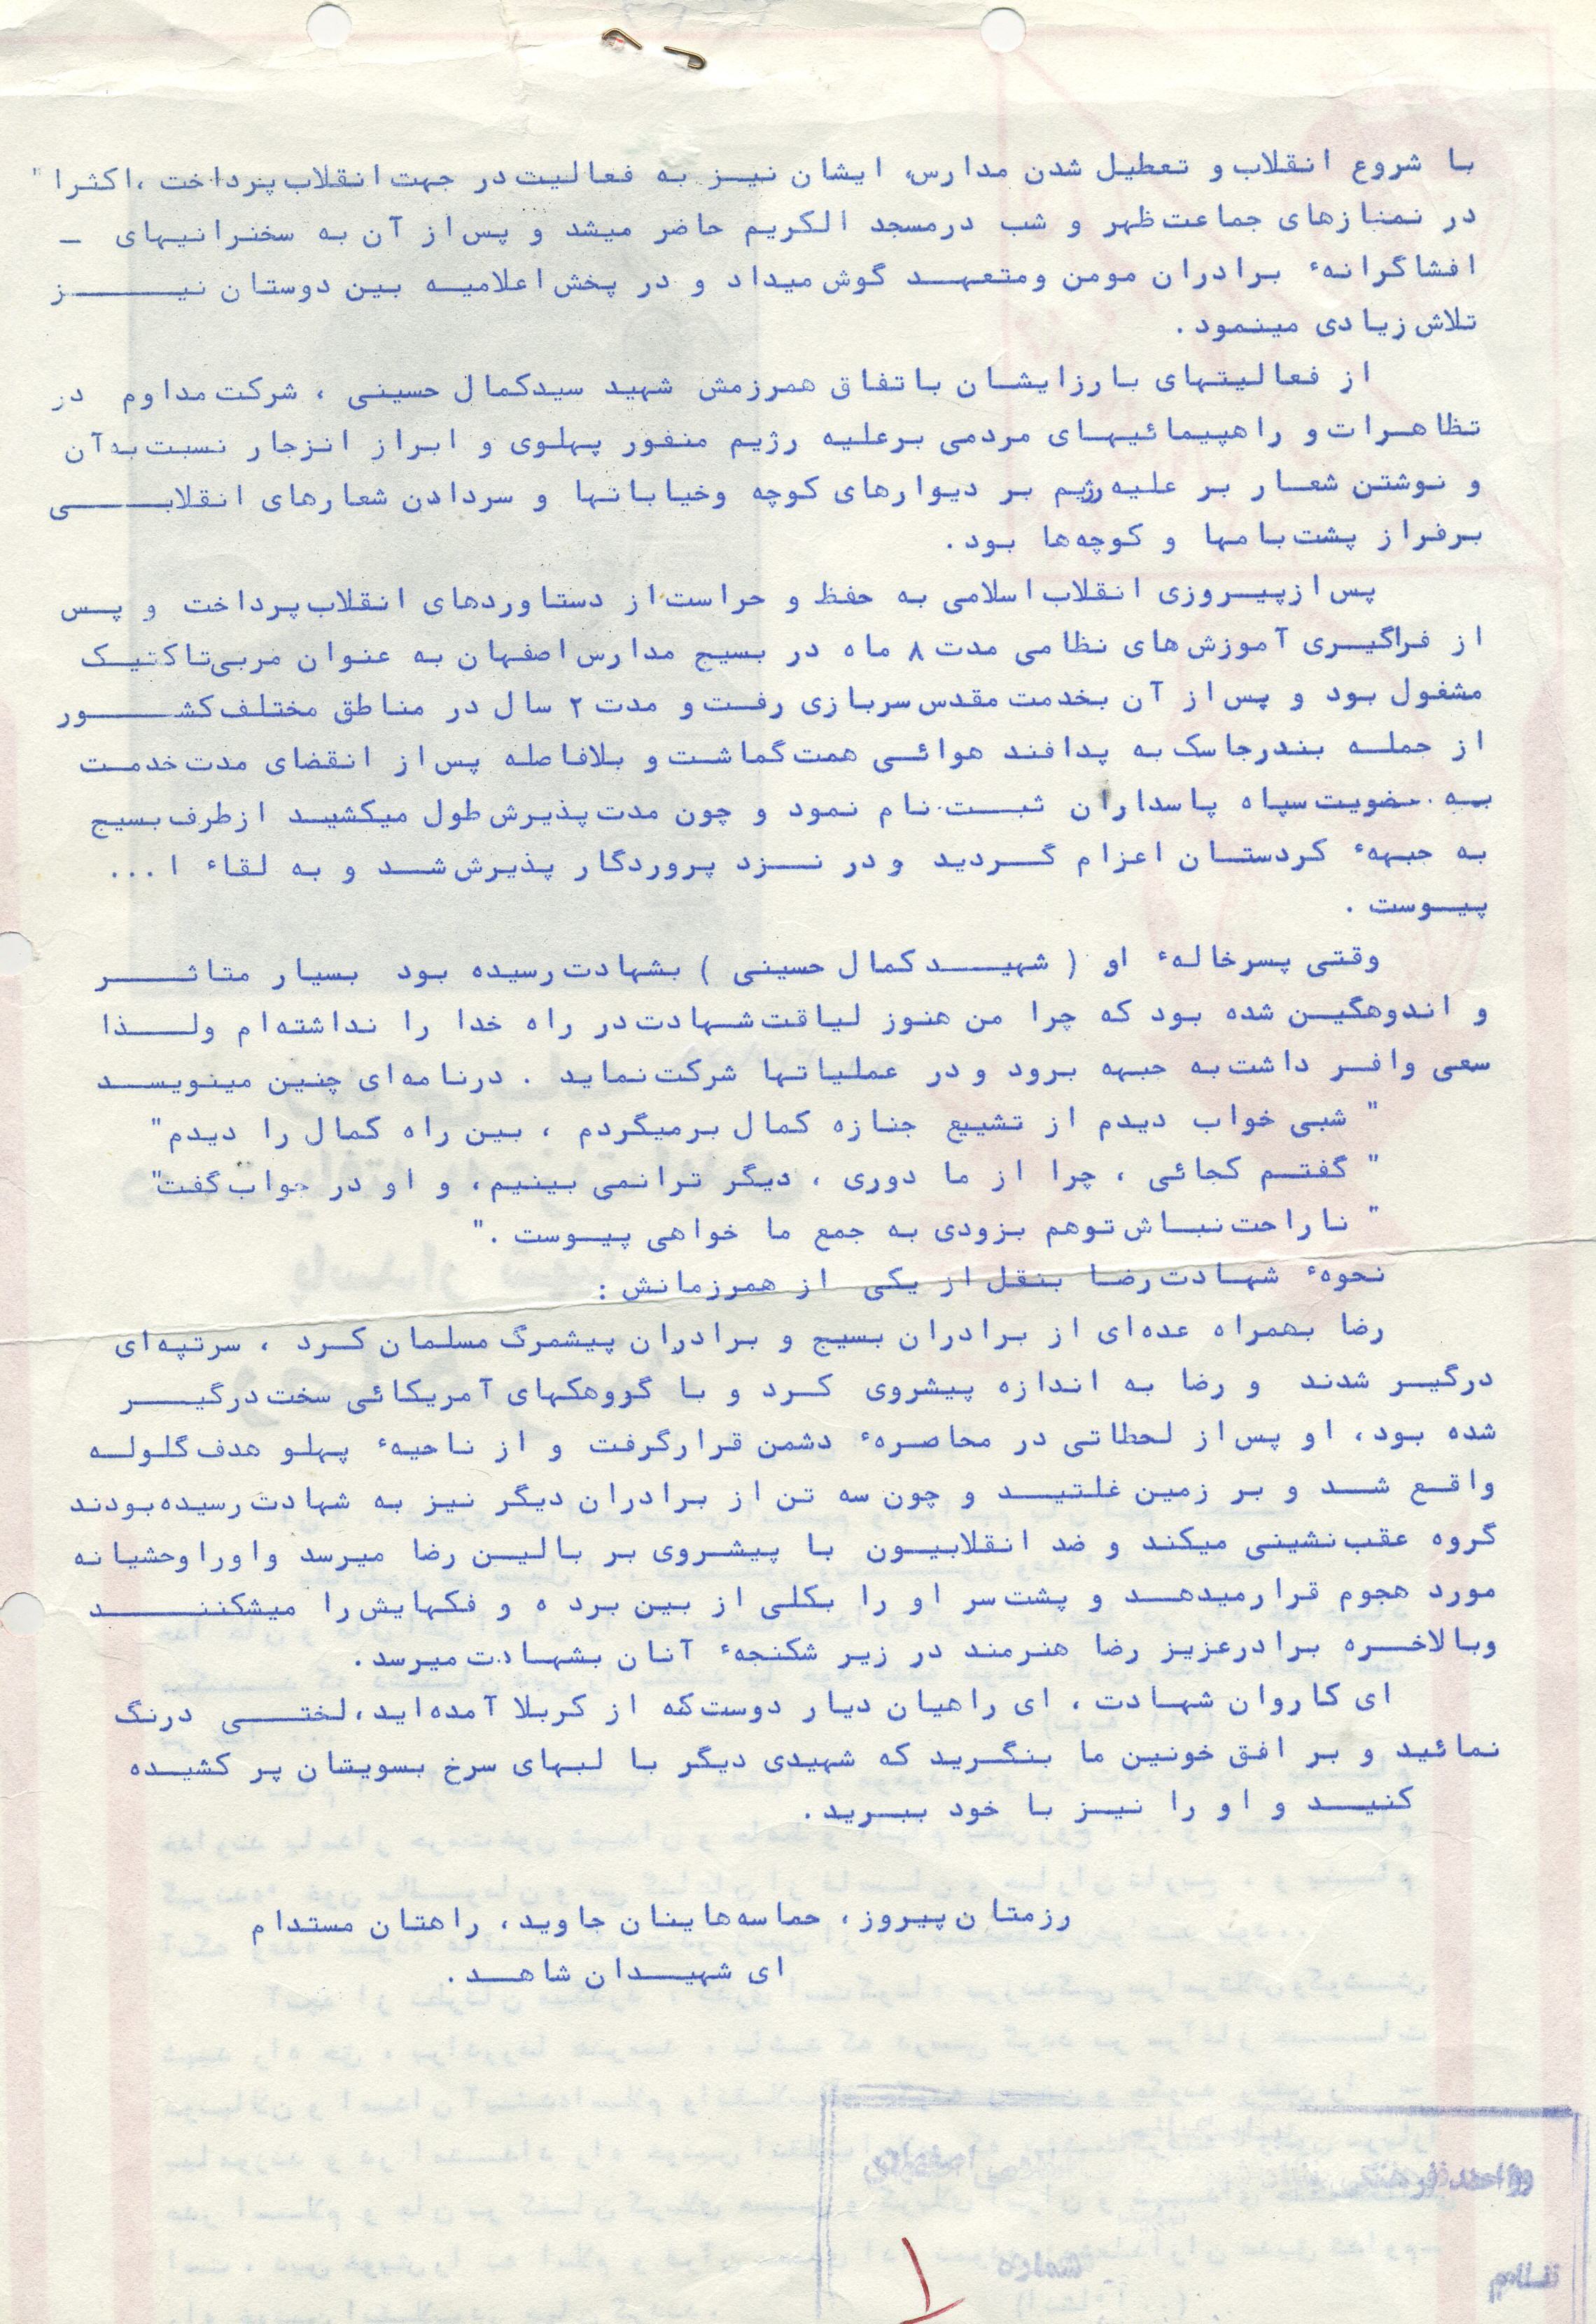 با شروع انقلاب و تعطیل شدن مدارس، ایشان نیز به فعالیت در جهت انقلاب پرداخت ،اکثرا"
در نمنازهای جماعت ظهر و شب درمسجد الکریم حاضر میشد و پس از آن به سخنرانیهای –
افشاگرانهٔ برادران مومن ومتعهد گوش میداد و در پخش اعلامیه بین دوستان نیز
تلاش زیادی مینمود.
از فعالیتهای بارز ایشان باتفاق همرزمش شهید سیدکمال حسینی ، شرکت مداوم در
تظاهرات و راهپیمائیهای مردمی برعلیه رژیم منفور پهلوی و ابراز انزجار نسبت به آن
و نوشتن شعار بر علیه رژیم بر دیوارهای کوچه وخیابانها و سردادن شعارهای انقلابی
برفراز پشت بامها و کوچه‌ها بود.
پس از پیروزی انقلاب اسلامی به حفظ و حراست از دستاوردهای انقلاب پرداخت و پس
از فراگیری آموزش های نظامی مدت ۸ ماه در بسیج مدارس اصفهان به عنوان مربی تاکتیک
مشغول بود و پس از آن بخدمت مقدس سربازی رفت و مدت ۲ سال در مناطق مختلف کشور
از جمله بندرجاسک به پدافند هوائی همت گماشت و بلافاصله پس از انقضای مدت خدمت
به عضویت سپاه پاسداران ثبت نام نمود و چون مدت پذیرش طول میکشید ازطرف بسیج
به جبههٔ کردستان اعزام گردید و در نزد پروردگار پذیرش شد و به لقاء ا...
پیوست .
وقتی پسرخالهٔ او ( شهید کمال حسینی ) بشهادت رسیده بود بسیار متاثر
و اندوهگین شده بود که چرا من هنوز لیاقت شهادت در راه خدا را نداشته‌ام ولذا
سعی وافر داشت به جبهه برود و در عملیاتها شرکت نماید . درنامه‌ای چنین مینویسد
" شبی خواب دیدم از تشییع جنازه کمال برمیگردم ، بین راه کمال را دیدم"
" گفتم کجائی ، چرا از ما دوری ، دیگر ترانمی بینیم، و او در جواب گفت"
" ناراحت نباش توهم بزودی به جمع ما خواهی پیوست ."
نحوهٔ شهادت رضا بنقل از یکی از همرزمانش :
رضا بهمراه عده‌ای از برادران بسیج و برادران پیشمرگ مسلمان کرد ، سرتپه‌ای
درگیر شدند و رضا به اندازه پیشروی کرد و با گروهکهای آمریکائی سخت درگیر
شده بود، او پس از لحظاتی در محاصرهٔ دشمن قرارگرفت و از ناحیهٔ پهلو هدف گلوله
واقع شد و بر زمین غلتید و چون سه تن از برادران دیگر نیز به شهادت رسیده بودند
گروه عقب نشینی میکند و ضد انقلابیون با پیشروی بر بالین رضا میرسد واوراوحشیانه
مورد هجوم قرارمیدهد و پشت سر او را بکلی از بین برد ه و فکهایش را میشکنند
وبالاخره برادرعزیز رضا هنرمند در زیر شکنجهٔ آنان بشهادت میرسد.
ای کاروان شهادت ، ای راهیان دیار دوست که از کربلا آمده‌اید، لختی درنگ
نمائید و بر افق خونین ما بنگرید که شهیدی دیگر با لبهای سرخ بسویشان پر کشیده
کنید و او را نیز با خود ببرید.
رزمتان پیروز، حماسه‌هاینان جاوید، راهتان مستدام
ای شهیدان شاهد.
شماره
۱